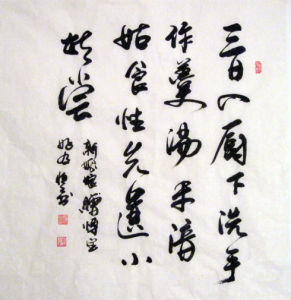 三日入厨下洗手
作羹湯未諳
姑食性先遣小
姑嘗
新嫁娘